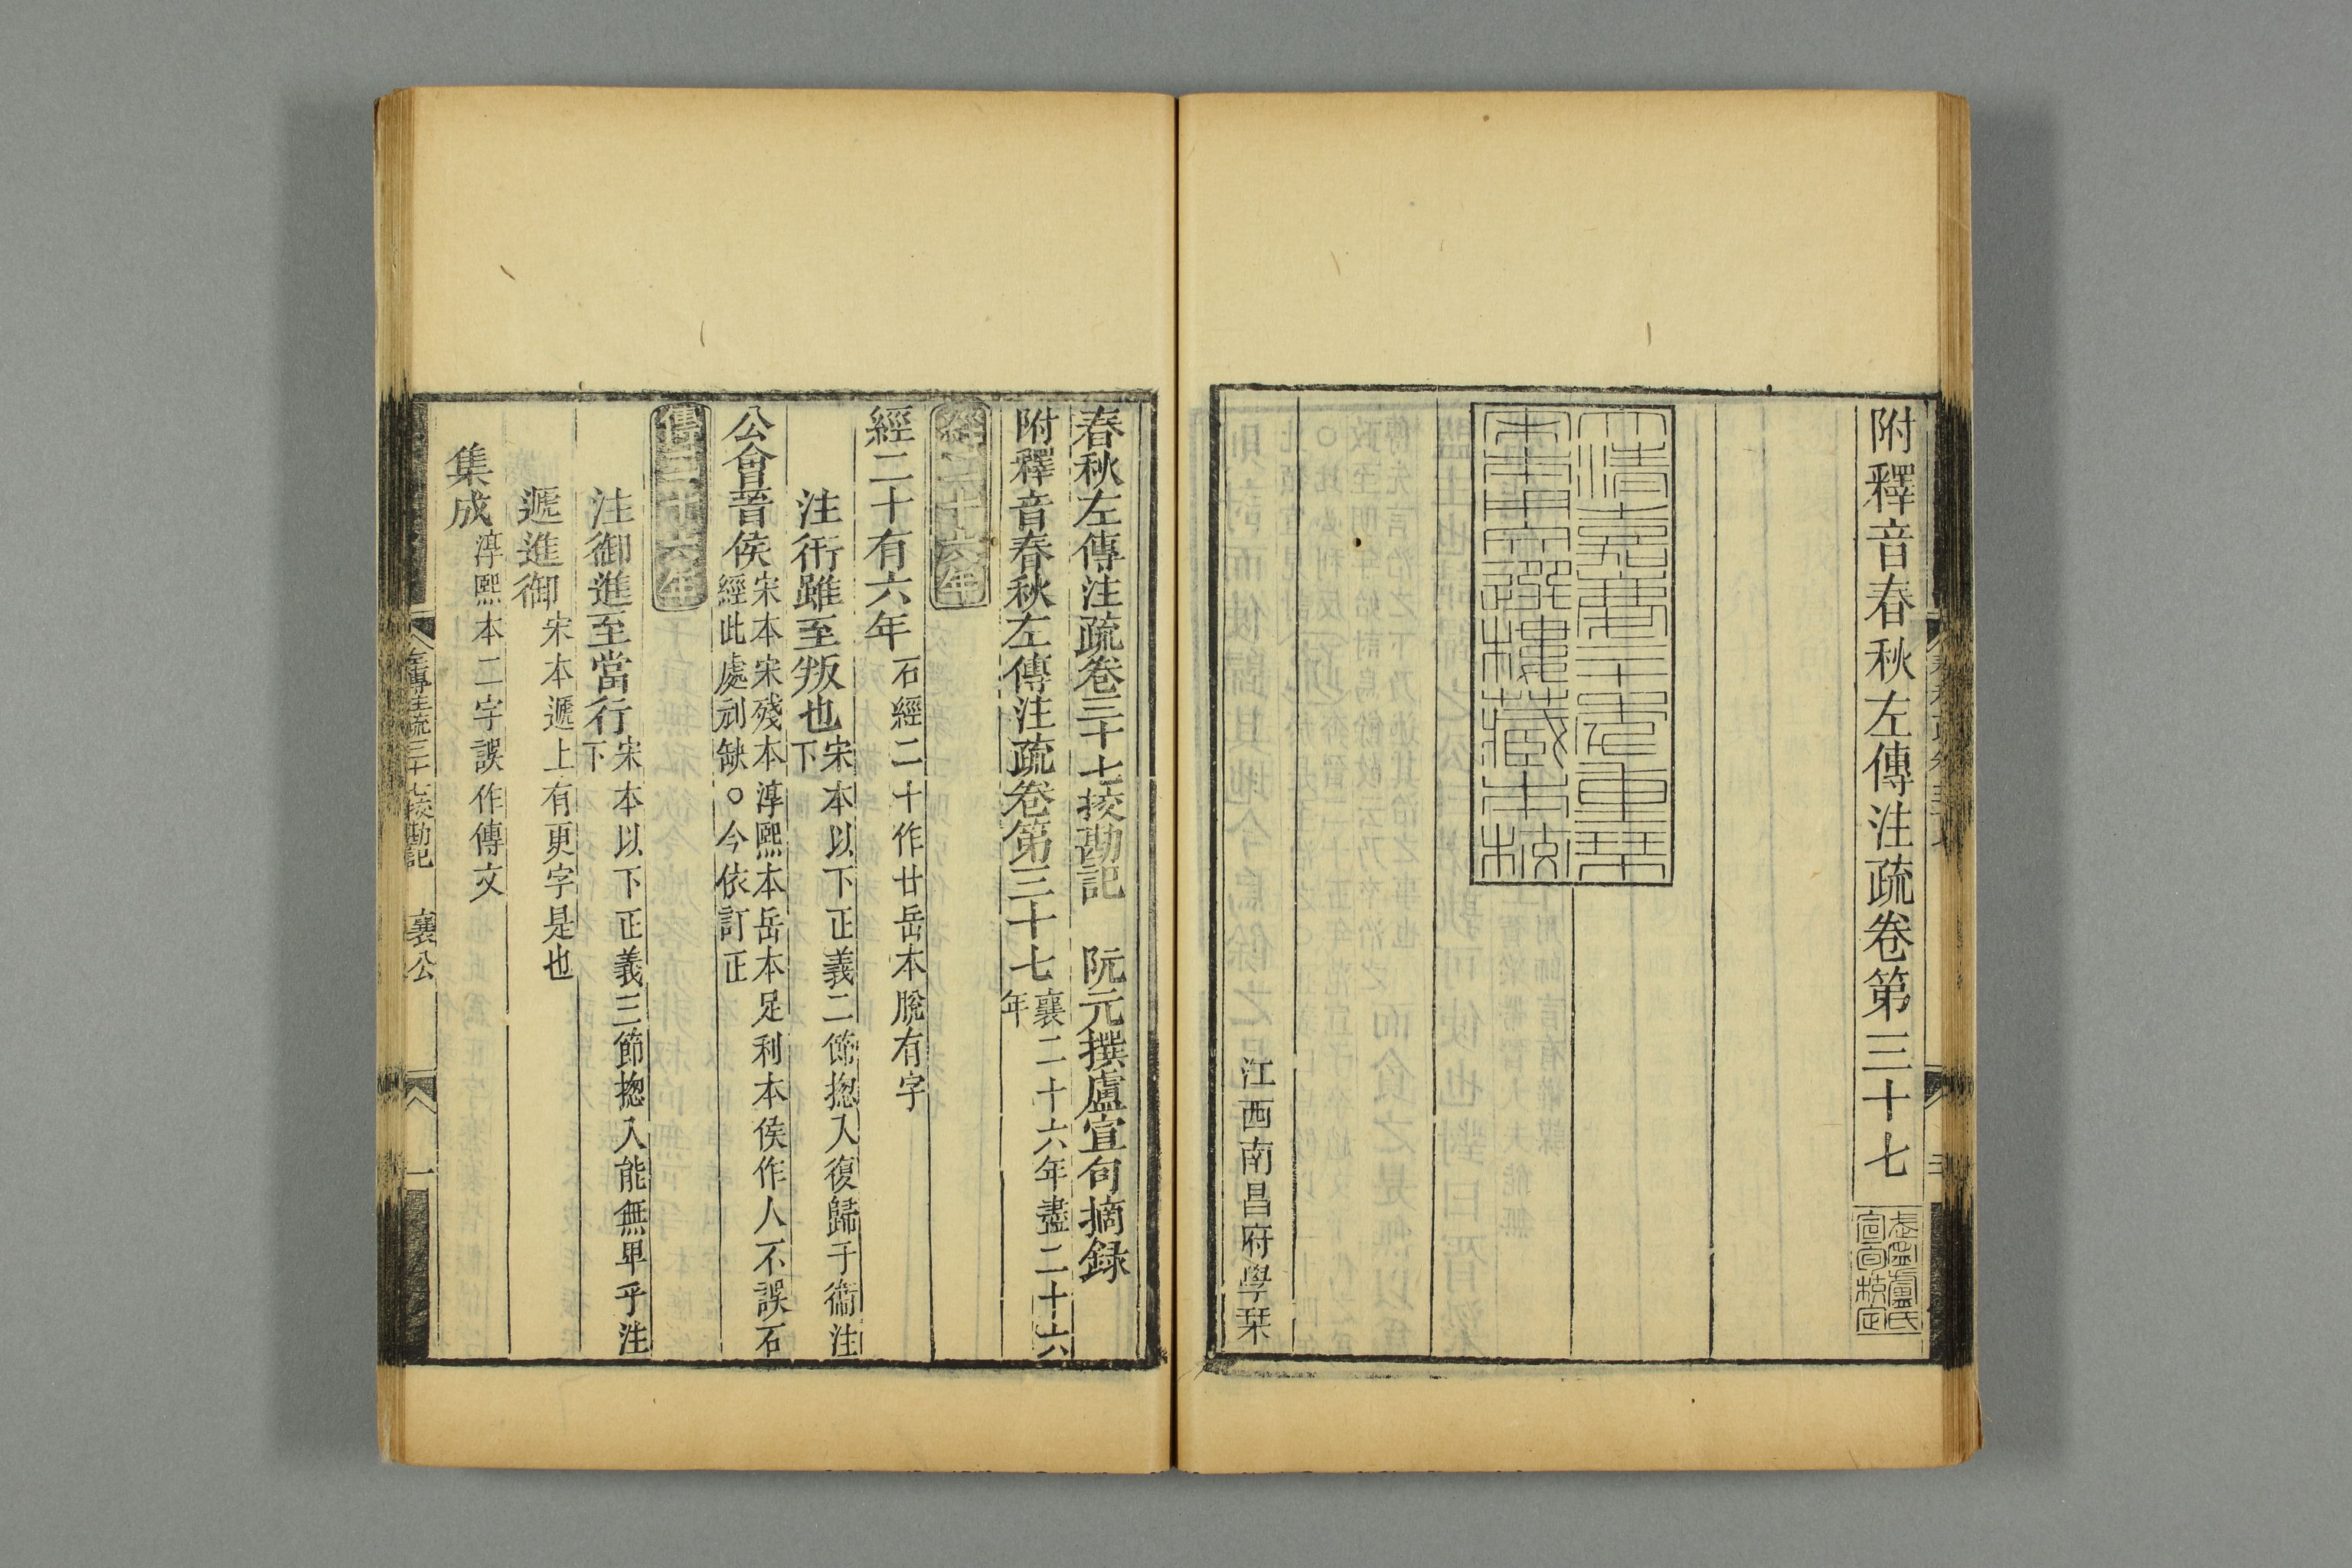 附釋音春秋左傳注疏卷第三十七
武寧盧氏
宣旬校定
大清嘉慶二十年重栞
宋本文選樓藏本校
江西南昌府學栞
春秋左傳注疏卷三十七挍勘記 阮元撰盧宣旬摘録
附釋音春秋左傳注疏卷第三十七 襄二十六年盡二十六
年
經二十六年
經二十有六年 石經二十作廿岳本脫有字
注衎雖至叛也 宋本以下正義二節揔入復歸于衞注
下
公會晉侯 宋本宋殘本淳熙本岳本足利本侯作人不誤石
經此處刓缺○今依訂正
傳二十六年
注御進至當行 宋本以下正義三節揔入能無卑乎注
下
遞進御 宋本遞上有更字是也
集成 淳熙本二字誤作傳文
左傳注疏三十七挍勘記 襄公 一